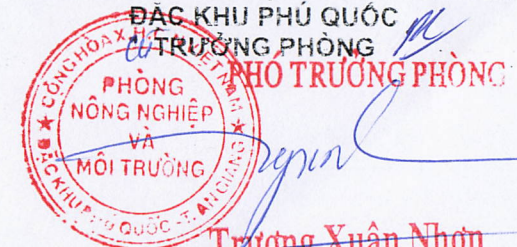 ĐẶC KHU PHÚ QUỐC
TRƯỞNG PHÒNG
PHÓ TRƯỞNG PHÒNG
CỘNG HÒA X.H.C.N VIỆT NAM
PHÒNG
NÔNG NGHIỆP
VÀ
MÔI TRƯỜNG
ĐẶC KHU PHÚ QUỐC - T. AN GIANG
Trương Xuân Nhơn